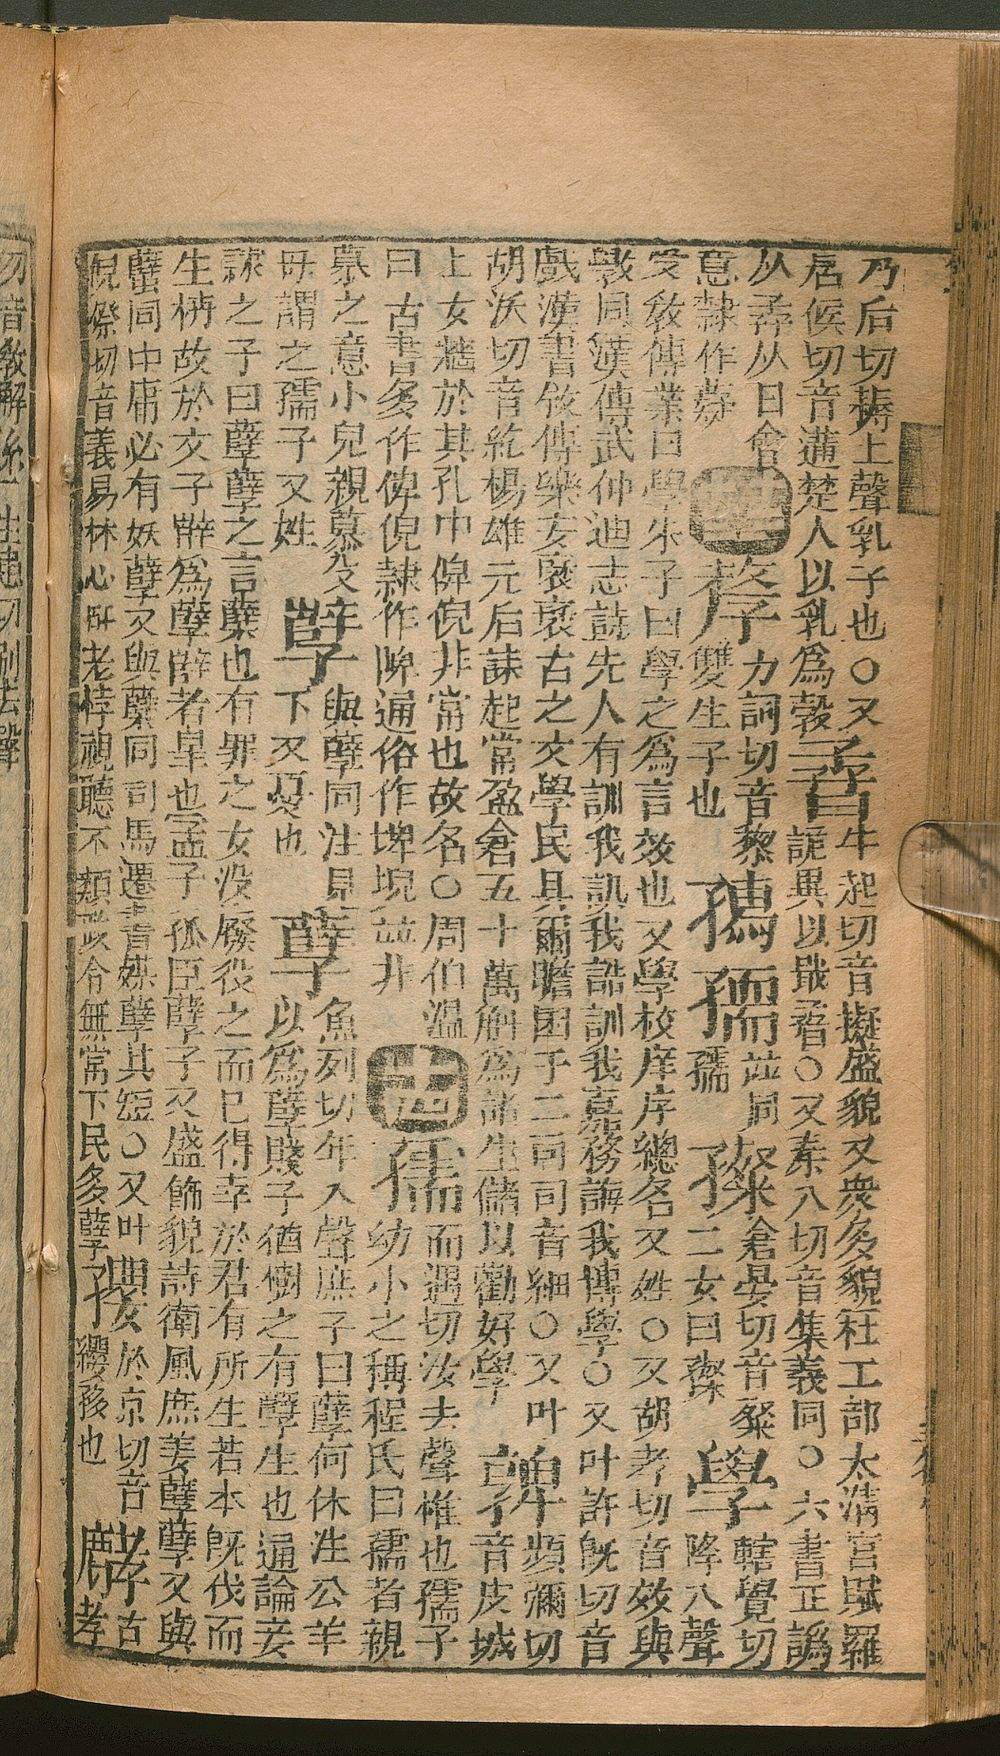 乃后切耨上聲乳子也○又
居候切音遘楚人以乳爲㝅
孴
牛起切音擬盛貌又衆多貌杜工部太清宮賦羅
詭異以戢孴○又秦入切音集義同○六書正譌
从孨从日會
意隸作孴
孷
力訶切音黎
孷雙生子也
並同
孺
倉晏切音粲
三女曰粲
學
轄覺切
降入聲
受敎傳業曰學朱子曰學之爲言效也又學校庠序總名又姓○又胡孝切音效與
斅同漢傅武仲迪志詩先人有訓我訊我誥訓我嘉務誨我博學○又叶許旣切音
戲漢書敘傳樂安裦裦古之文學民具爾瞻困于二司司音細○又叶
胡沃切音紇楊雄元后誄起常盈倉五十萬斛爲諸生儲以勸好學
頻彌切
音皮城
上女牆於其孔中俾倪非常也故名○周伯溫
曰古書多作俾倪隸作陴通俗作埤堄並非
十四
孺
而遇切汝去聲稚也孺子
幼小之稱程氏曰孺者親
慕之意小兒親慕父
母謂之孺子又姓
孼
與孽同注見
下又憂也
孽
魚列切年入聲庶子曰孽何休注公羊
以爲孽賤子猶樹之有孽生也通論妾
隸之子曰孽孽之言糵也有罪之女没廢役之而已得幸於君有所生若木旣伐而
生枿故於文子辥爲孽辥者辠也孟子孤臣孽子又盛飾貌詩衛風庶姜孽孽又與
蠥同中庸必有妖孽又與糵同司馬遷書媒孽其短○又叶
倪傺切音義易林心狂老悖視聽不類政令無常下民多孽
於京切音
纓孩也
古
孝